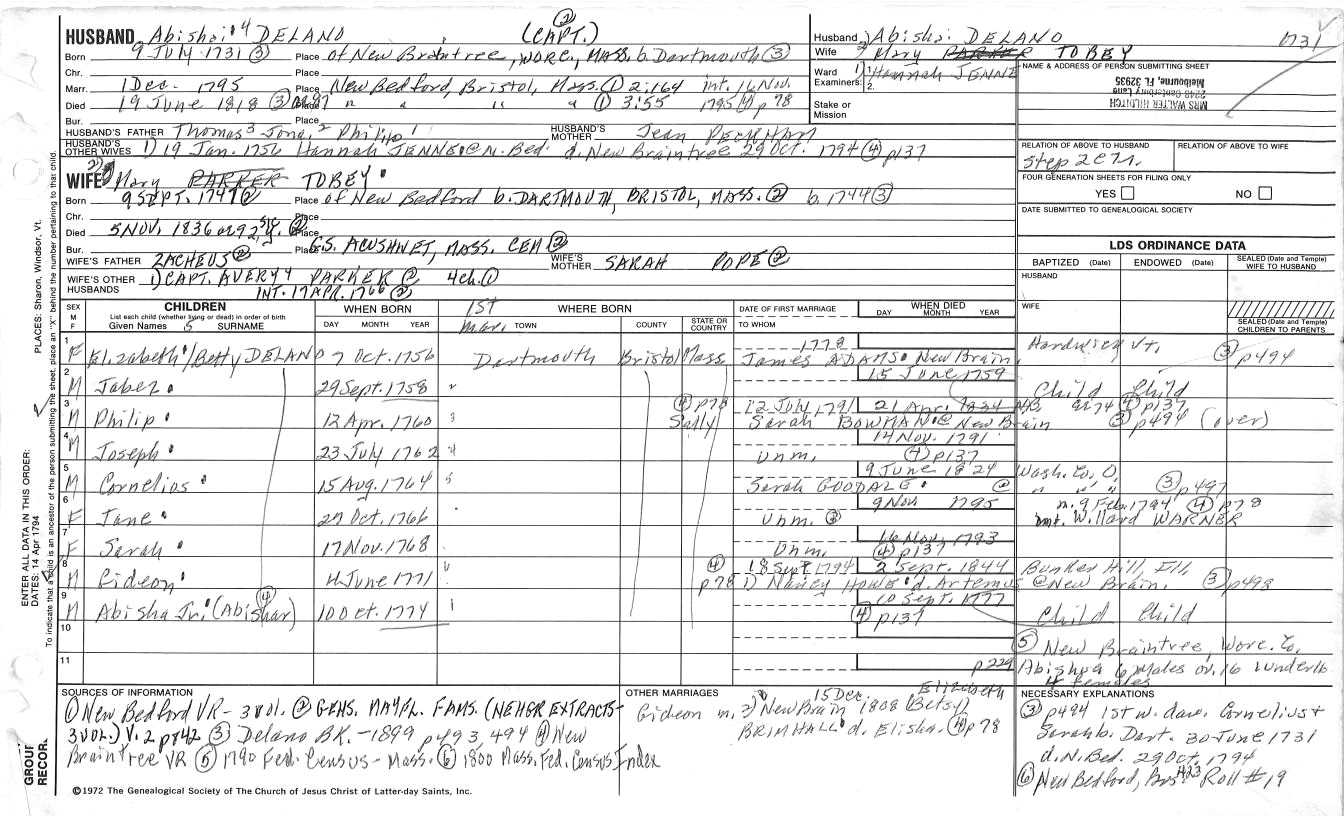 HUSBAND Abishai 4 DELANO (CAPT.) ②
Born 9 July 1731 ③ Place of New Braintree, WORC., MASS. b. Dartmouth ③
Chr. Place
Marr. 1 Dec. 1795 Place New Bedford, Bristol, Mass. ① 2:164 int. 16 Nov.
Died 19 June 1818 ③ " " " " ① 3:55 1795 ④ p 78
Bur.
HUSBAND'S FATHER Thomas 3 Jona. 2 Philip 1 HUSBAND'S MOTHER Jean PECKHAM
HUSBAND'S OTHER WIVES 1) 19 Jan. 1756 Hannah JENNE @ N. Bed. d. New Braintree 29 Oct. 1794 ④ p137
Husband Abisha: DELANO 1731
Wife 2) Mary PARKER TOBEY
Ward 1) Hannah JENNE
Examiners: 1. 2.
Stake or Mission
NAME & ADDRESS OF PERSON SUBMITTING SHEET
MRS WALTER HILDITCH
Melbourne, FL 32935
RELATION OF ABOVE TO HUSBAND RELATION OF ABOVE TO WIFE
Step 2C7r.
FOUR GENERATION SHEETS FOR FILING ONLY
YES NO
DATE SUBMITTED TO GENEALOGICAL SOCIETY
2) WIFE Mary PARKER TOBEY
Born 9 SEPT. 1747 ② Place of New Bedford b. DARTMOUTH, BRISTOL, MASS. ② b. 1744 ③
Chr. Place
Died 5 NOV. 1836 92 Place
Bur. Place G.S. ACUSHNET, MASS. CEM ②
WIFE'S FATHER ZACHEUS ② WIFE'S MOTHER SARAH POPE ②
WIFE'S OTHER HUSBANDS 1) CAPT. AVERY 4 PARKER @ 4ch. ①
INT. 17 APR. 1766 ②
LDS ORDINANCE DATA
BAPTIZED (Date) ENDOWED (Date) SEALED (Date and Temple) WIFE TO HUSBAND
HUSBAND
WIFE
SEALED (Date and Temple) CHILDREN TO PARENTS
SEX M F CHILDREN WHEN BORN 1ST WHERE BORN DATE OF FIRST MARRIAGE WHEN DIED
List each child (whether living or dead) in order of birth
Given Names 5 SURNAME DAY MONTH YEAR mar. TOWN COUNTY STATE OR COUNTRY TO WHOM DAY MONTH YEAR
1 F Elizabeth/Betty DELANO 7 Oct. 1756 Dartmouth Bristol Mass 1778 James ADAMS New Brain. Hardwick Vt. ③ p494
2 M Jabez 29 Sept. 1758 " 15 June 1759 Child Child
3 M Philip 12 Apr. 1760 ④ p78 Sally 12 July 1791 Sarah BOWMAN @ New Brain 21 Apr. 1834 ④ p137 ③ p494 (over)
4 M Joseph 23 July 1762 14 Nov. 1791 Unm. ④ p137
5 M Cornelius 15 Aug. 1764 Sarah GOODALE @ 9 June 1824 Wash. Co. O. ③ p497
6 F Jane 27 Oct. 1766 Unm. ③ 9 Nov 1795 m. 9 Feb. 1794 ④ p78
int. Willard WARNER
7 F Sarah 17 Nov. 1768 Unm. 16 Nov. 1793 ④ p137
8 M Gideon 4 June 1771 ④ p78 18 Sept 1794 1) Nancy HOWE d. Artemus @ New Brain. 2 Sept. 1844 Bunker Hill, Ill. ③ p498
9 M Abisha Jr. (Abishar) ④ 10 Oct. 1774 10 Sept. 1777 ④ p137 Child Child
10
11 p229
⑤ New Braintree, Worc. Co.
Abishua 6 males ov. 16 1 under 16
4 females
SOURCES OF INFORMATION
① New Bedford VR - 3 vol. ② GENS. MAYFL. FAMS. (NEHGR EXTRACTS-
3 VOL.) V. 2 p842 ③ Delano BK. - 1899 p493, 494 ④ New
Braintree VR ⑤ 1790 Fed. Census - Mass. ⑥ 1800 Mass. Fed. Census Index
OTHER MARRIAGES
Gideon m. 2) New Brain 15 Dec. 1808 Elizabeth (Betsy)
BRIMHALL d. Elisha. ④ p 78
NECESSARY EXPLANATIONS
③ p494 1st w. dau. Cornelius +
Sarah b. Dart. 30 June 1731
d. N. Bed. 29 Oct. 1794
⑥ New Bedford, Bris. 423 Roll #19
©1972 The Genealogical Society of The Church of Jesus Christ of Latter-day Saints, Inc.
ENTER ALL DATA IN THIS ORDER:
DATES: 14 Apr 1794
PLACES: Sharon, Windsor, Vt.
To indicate that a child is an ancestor of the person submitting the sheet, place an "X" behind the number pertaining to that child.
GROUP RECOR.